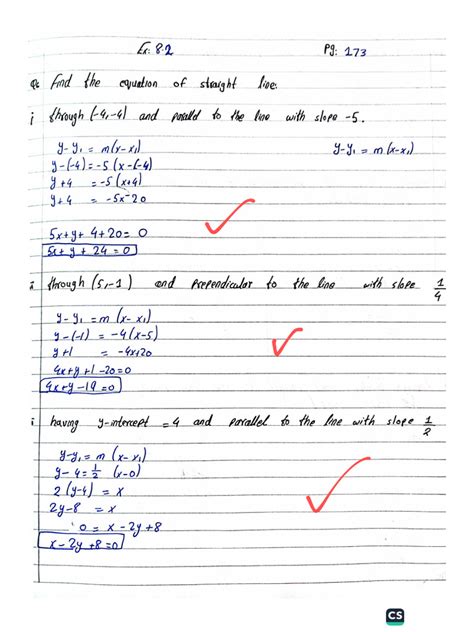 Ex: 8.2 Pg: 173
Q: Find the equation of straight line:
i through (-4,-4) and parallel to the line with slope -5.
y-y₁ = m(x-x₁) y-y₁ = m(x-x₁)
y-(-4) = -5(x-(-4)
y+4 = -5(x+4)
y+4 = -5x-20
5x+y+4+20=0
5x+y+24=0
through (5,-1) and prependicular to the line with slope 1/4
y-y₁ = m(x-x₁)
y-(-1) = -4(x-5)
y+1 = -4x+20
4x+y+1-20=0
4x+y-19=0
i having y-intercept = 4 and parallel to the line with slope 1/2
y-y₁ = m(x-x₁)
y-4 = 1/2 (x-0)
2(y-4) = x
2y-8 = x
0 = x-2y+8
x-2y+8=0
CS